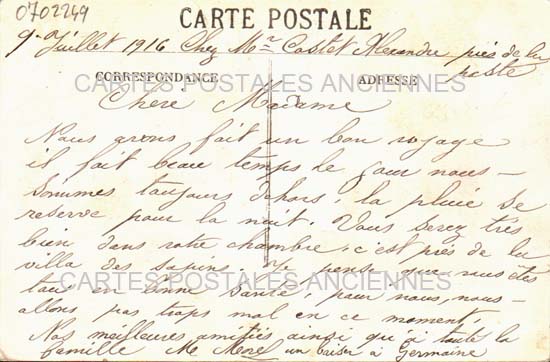 0702249
CARTE POSTALE
9 Juillet 1916 Chez Mr Castet Alexandre près de la
poste
CORRESPONDANCE
ADRESSE
CARTES POSTALES ANCIENNES
Chère Madame
Nous avons fait un bon voyage
il fait beau temps le jour nous
sommes toujours dehors, la pluie se
reserve pour la nuit. Vous serez très
bien dans votre chambre, c'est près de la
villa des sapins. Je pense que vous êtes
tous en bonne santé, pour nous, nous
CARTES POSTALES ANCIENNES
allons pas trop mal en ce moment.
Nos meilleures amitiés ainsi qu'à toute la
famille M Morel un baiser à Germaine